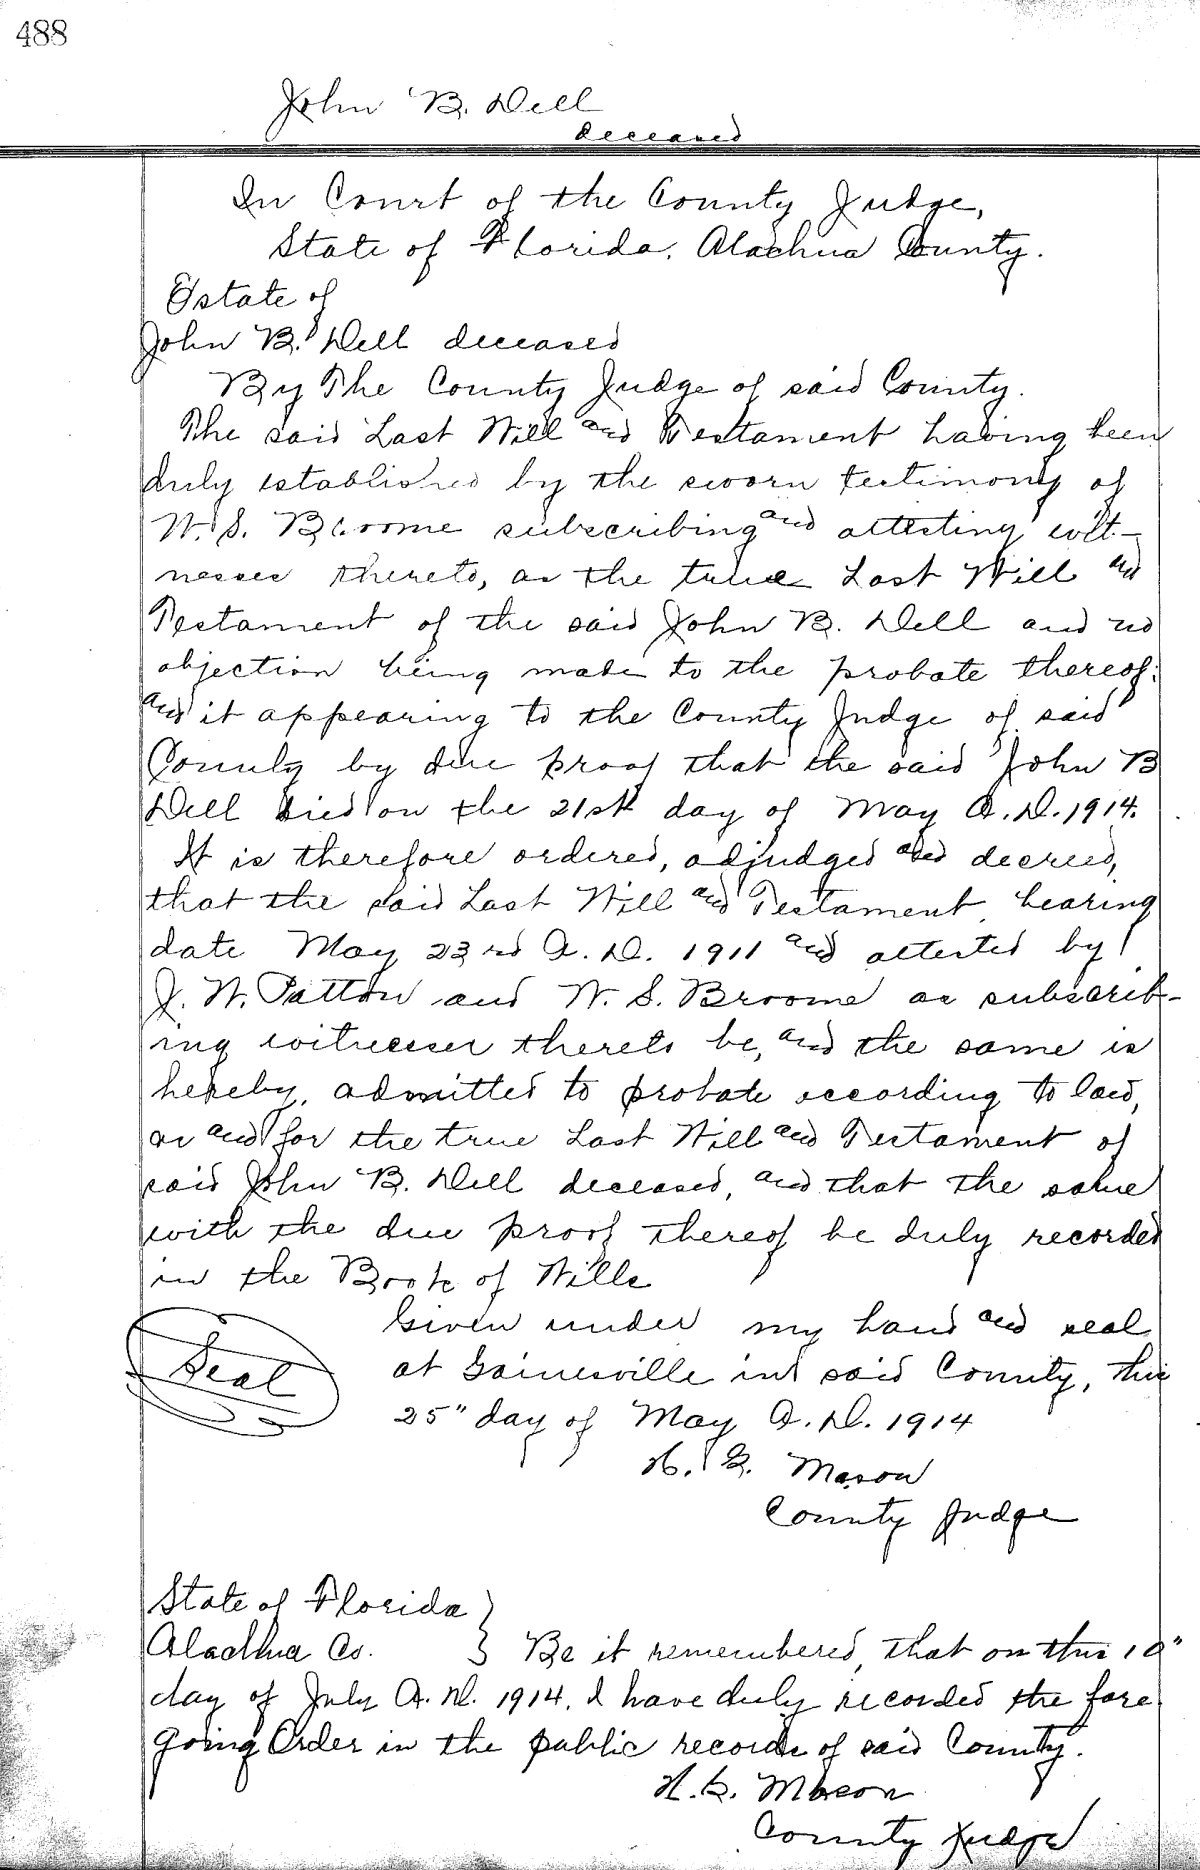 488
John B. Dell
deceased
In Court of the County Judge,
State of Florida, Alachua County.
Estate of
John B. Dell deceased
By The County Judge of said County.
The said Last Will and Testament having been
duly established by the sworn testimony of
W. S. Broome subscribing and attesting wit-
nesses thereto, as the true Last Will and
Testament of the said John B. Dell and no
objection being made to the probate thereof:
and it appearing to the County Judge of said
County by due proof that the said John B
Dell died on the 21st day of May A.D. 1914.
It is therefore ordered, adjudged and decreed,
that the said Last Will and Testament bearing
date May 23rd A.D. 1911 and attested by
J. W. Patton and W. S. Broome as subscrib-
ing witnesses thereto be, and the same is
hereby, admitted to probate according to law,
as and for the true Last Will and Testament of
said John B. Dell deceased, and that the same
with the due proof thereof be duly recorded
in the Book of Wills
Given under my hand and seal
Seal at Gainesville in said County, this
25" day of May A.D. 1914
H. G. Mason
County Judge
State of Florida }
Alachua Co. } Be it remembered, that on this 10"
day of July A.D. 1914, I have duly recorded the fore
going Order in the public records of said County.
H. G. Mason
County Judge